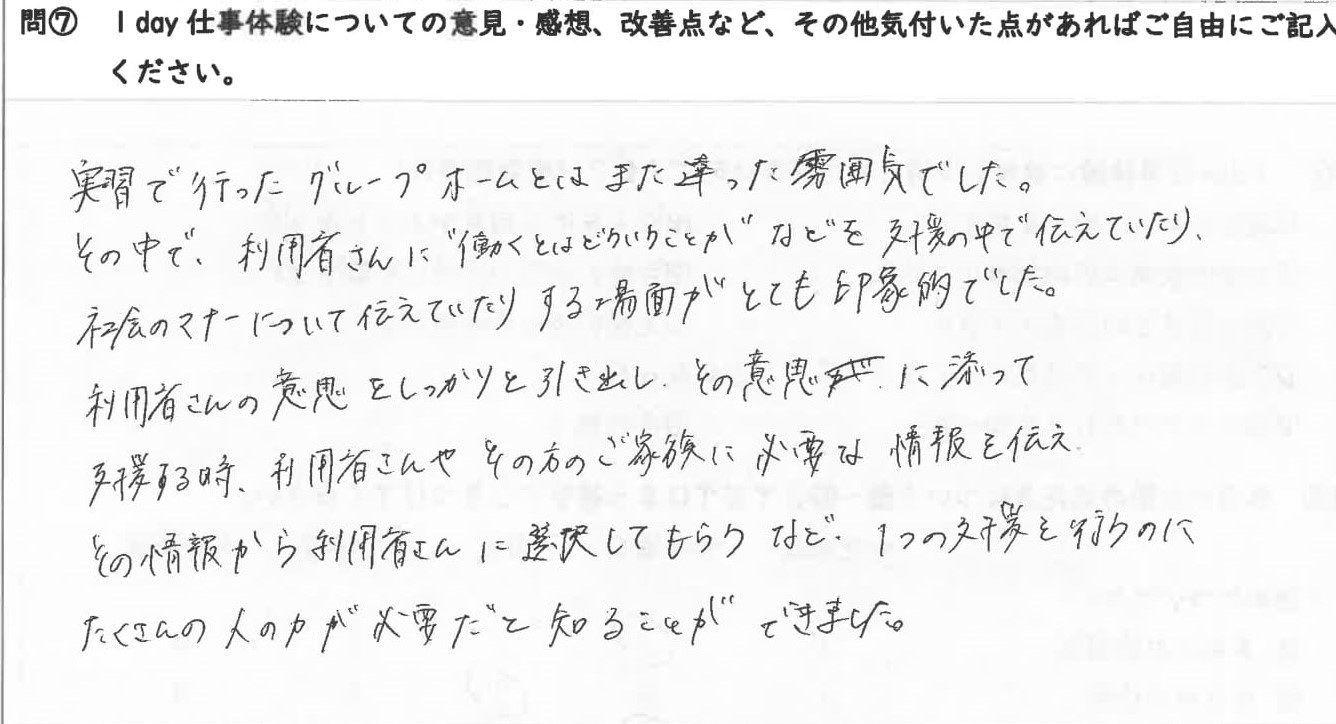 問⑦ 1day仕事体験についての意見・感想、改善点など、その他気付いた点があればご自由にご記入
ください。
実習で行ったグループホームとはまた違った雰囲気でした。
その中で、利用者さんに"働くとはどういうことか"などを支援の中で伝えていたり、
社会のマナーについて伝えていたりする場面がとても印象的でした。
利用者さんの意思をしっかりと引き出し、その意思に添って
支援する時、利用者さんやその方のご家族に必要な情報を伝え、
その情報から利用者さんに選択してもらうなど、1つの支援を行うのに
たくさんの人の力が必要だと知ることができました。